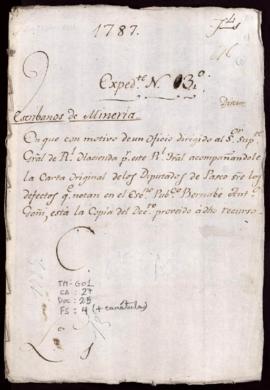 1787.
Exped.te N. 03.o
Escribanos de Mineria
En que con motivo de un Oficio dirigido al S.or Sup.te
Gral de R.l Hacienda p.r este R.l Tral acompañandole
la Carta Original de los Diputados de Pasco sre los
defectos q.e notan en el Es.no Pub.co Bernabe Ant.o
está la Copia del Dec.to proveido a dho recurso.
TM-GO1
CA: 27
DOC: 25
FS: 4 (+ carátula)